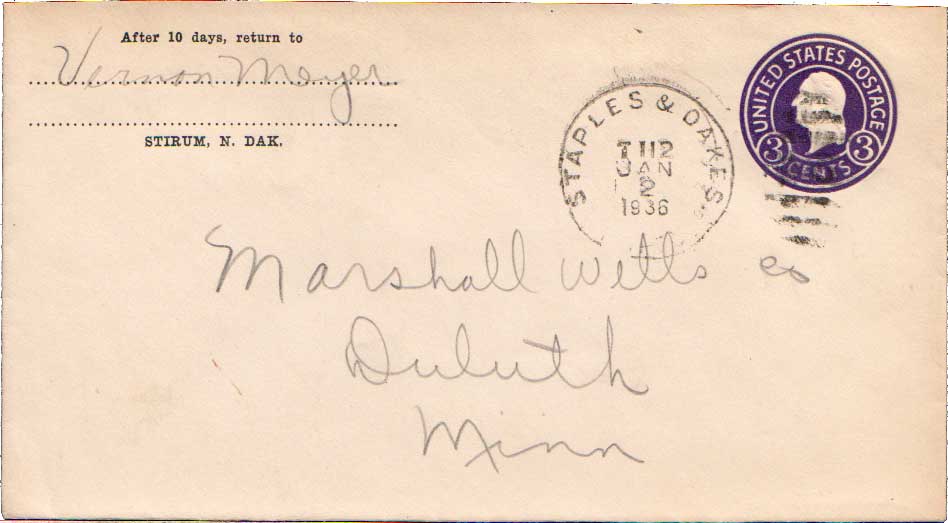 After 10 days, return to
Vernon Meyer
STIRUM, N. DAK.
STAPLES & OAKES
T 112
JAN
2
1936
UNITED STATES POSTAGE
3 CENTS 3
Marshall Wells co
Duluth
Minn